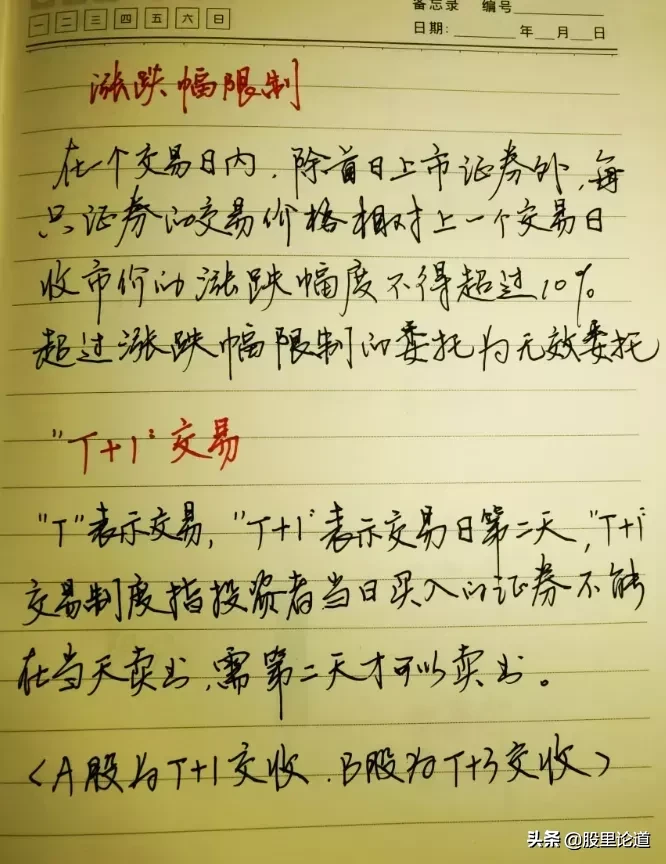 备忘录 编号
一 二 三 四 五 六 日
日期: 年 月 日
涨跌幅限制
在一个交易日内，除首日上市证券外，每
只证券的交易价格相对上一个交易日
收市价的涨跌幅度不得超过10%
超过涨跌幅限制的委托为无效委托
"T+1"交易
"T"表示交易，"T+1"表示交易日第二天，"T+1"
交易制度指投资者当日买入的证券不能
在当天卖出，需第二天才可以卖出。
〈A股为T+1交收．B股为T+3交收〉
头条 @股里论道